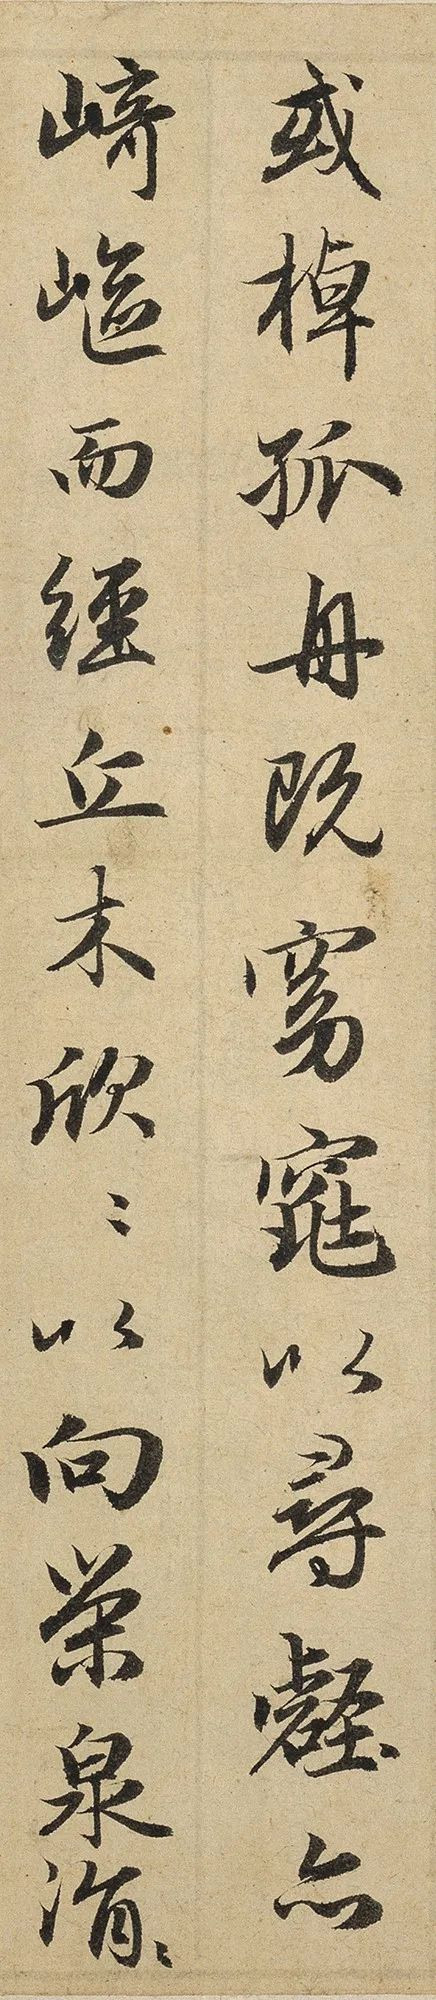 或棹孤舟既窈窕以尋壑亦
崎嶇而經丘木欣〻以向榮泉涓〻